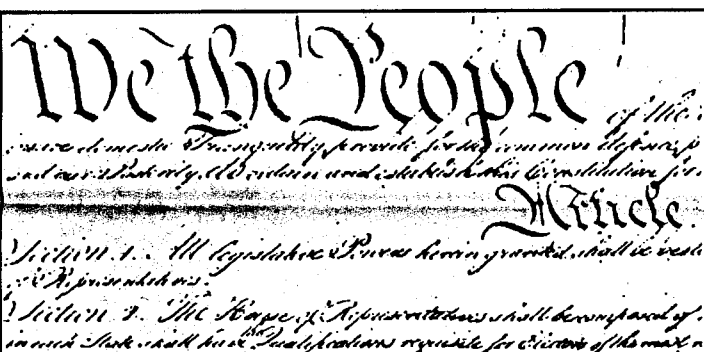 We the People of the
insure domestic Tranquility, provide for the common defence, p
and our Posterity, do ordain and establish this Constitution for
Article.
Section. 1. All legislative Powers herein granted shall be veste
of Representatives.
Section. 2. The House of Representatives shall be composed of
in each State shall have the Qualifications requisite for Electors of the most n